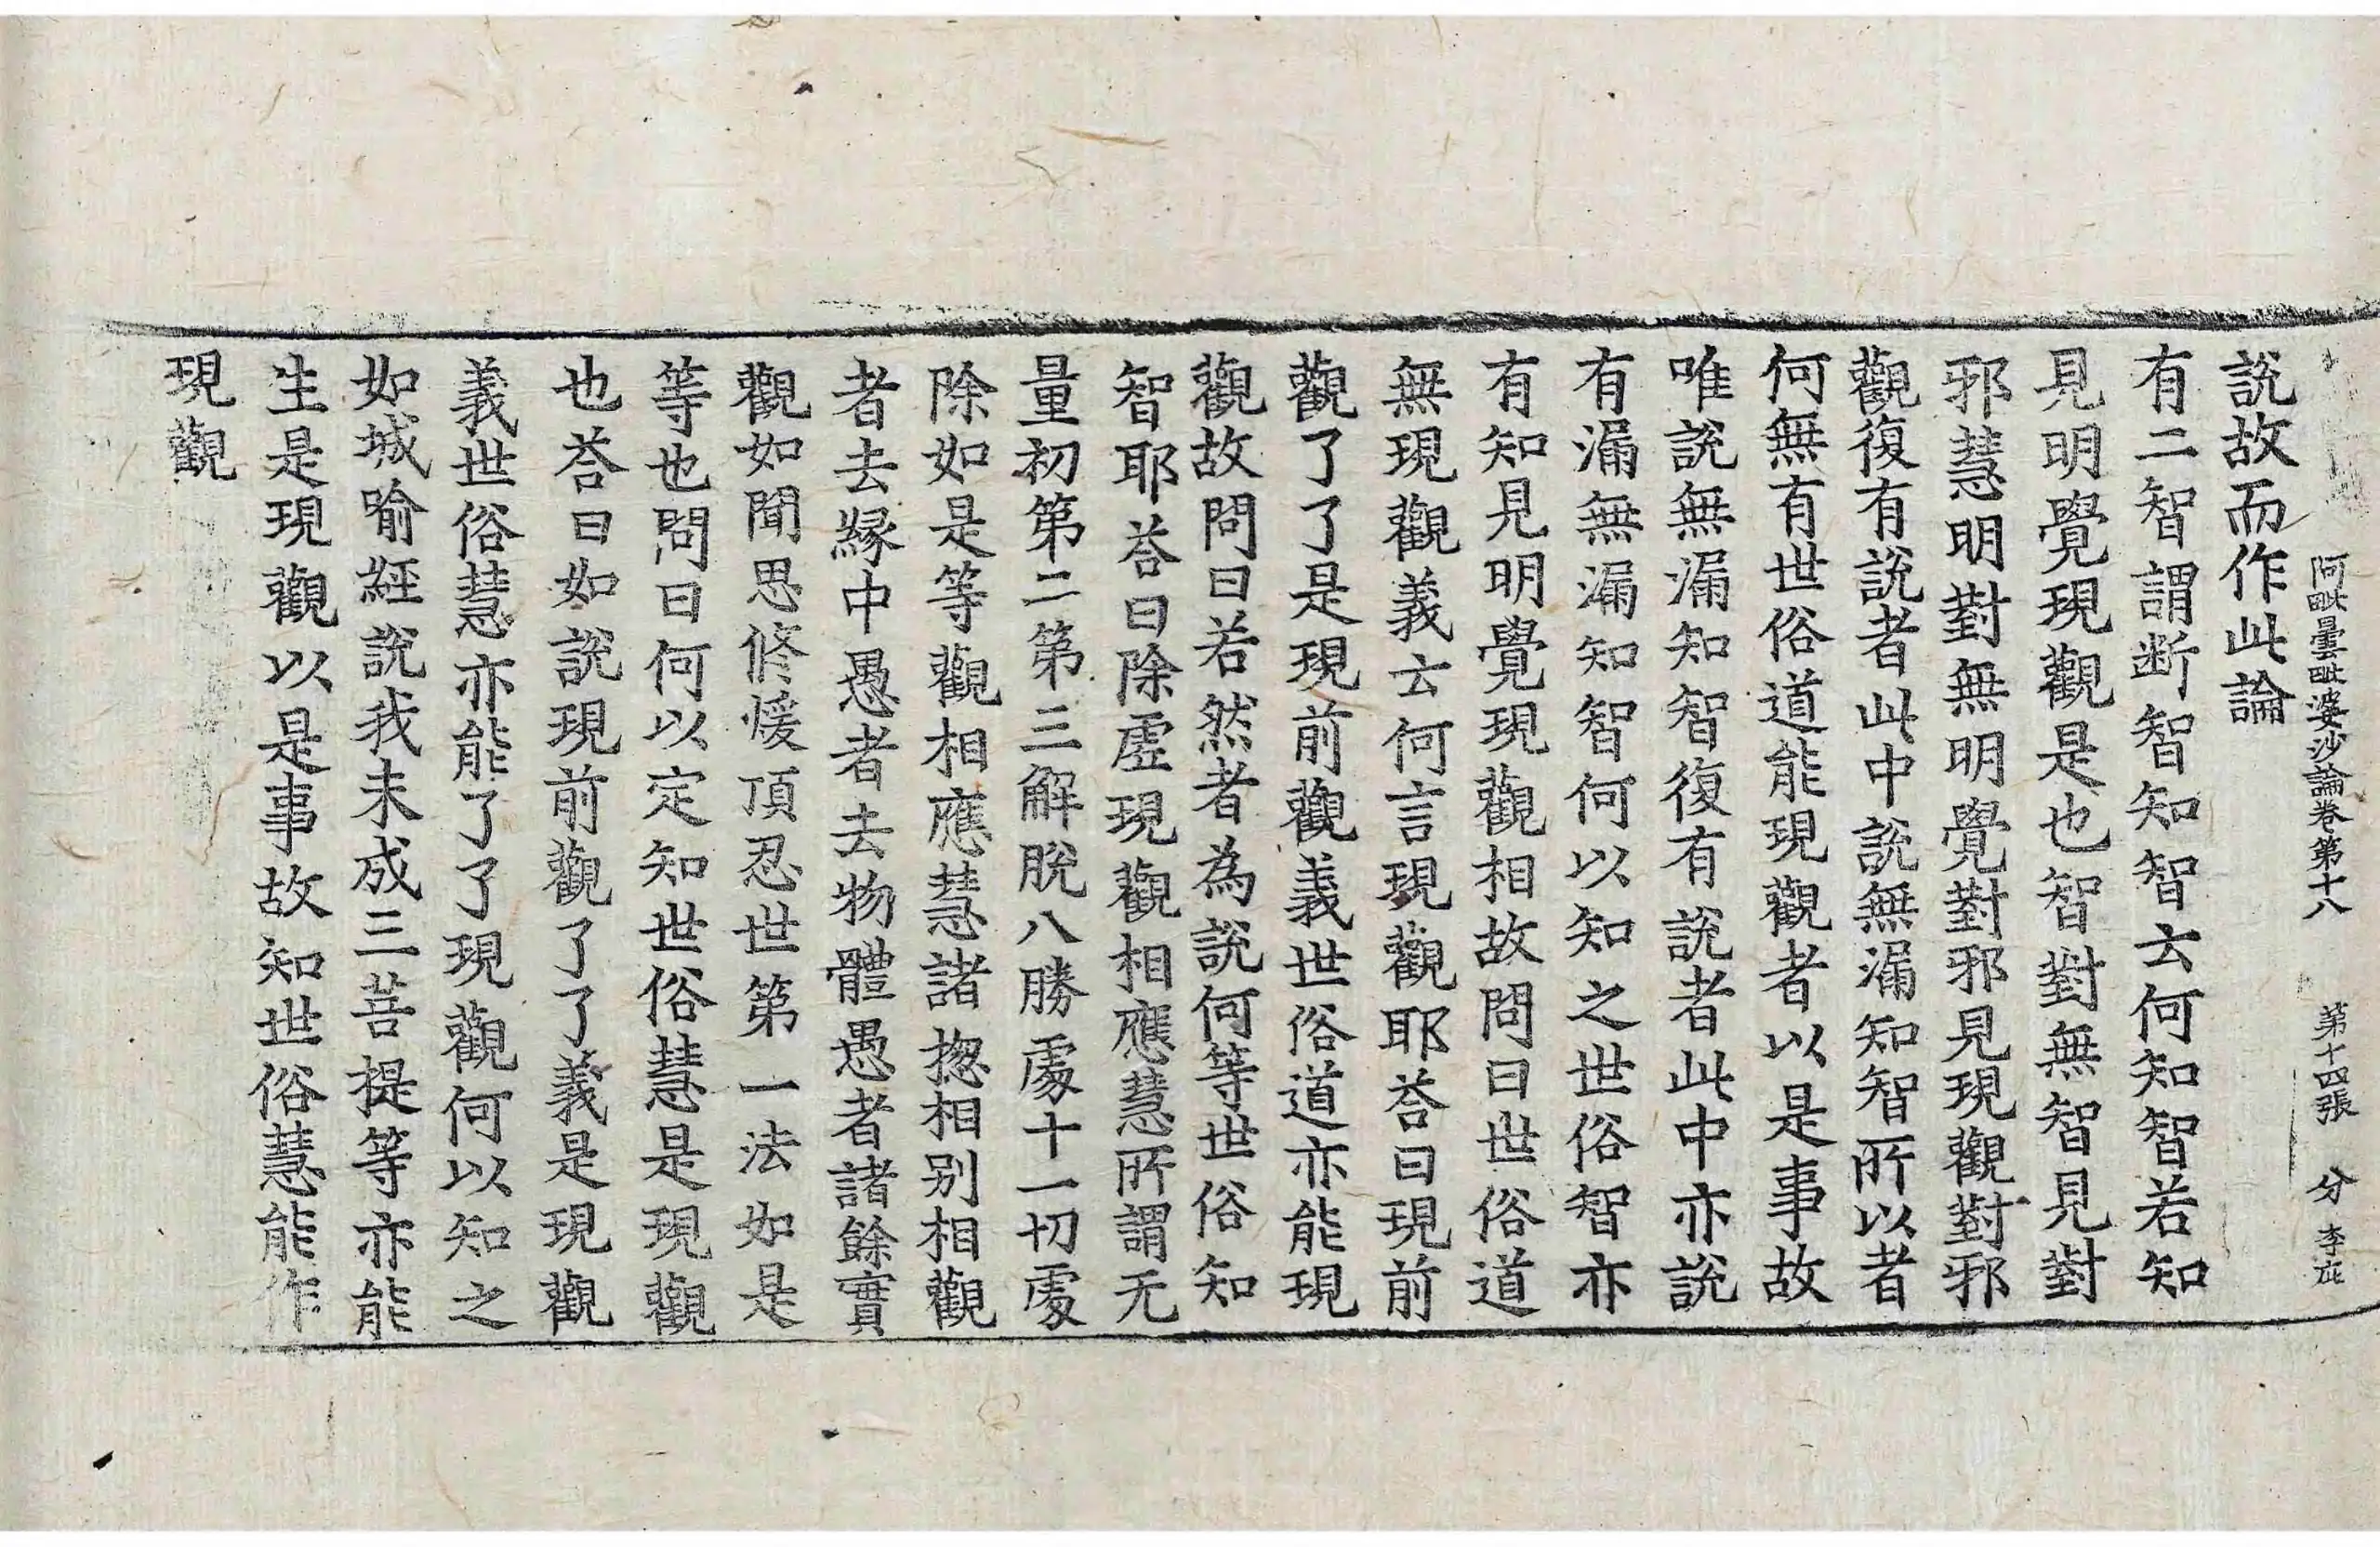 阿毗曇毗婆沙論卷第十八　第十四張　分　李疵
說故而作此論
有二智謂断智知智云何知智若知
見明覺現觀是也智對無智見對
邪慧明對無明覺對邪見現觀對邪
觀復有說者此中說無漏知智所以者
何無有世俗道能現觀者以是事故
唯說無漏知智復有說者此中亦說
有漏無漏知智何以知之世俗智亦
有知見明覺現觀相故問曰世俗道
無現觀義云何言現觀耶荅曰現前
觀了了是現前觀義世俗道亦能現
觀故問曰若然者為說何等世俗知
智耶荅曰除虛現觀相應慧所謂无
量初第二第三解脫八勝處十一切處
除如是等觀相應慧諸揔相別相觀
者去緣中愚者去物體愚者諸餘實
觀如聞思修煖頂忍世第一法如是
等也問曰何以定知世俗慧是現觀
也荅曰如說現前觀了了義是現觀
義世俗慧亦能了了現觀何以知之
如城喻經說我未成三菩提等亦能
生是現觀以是事故知世俗慧能作
現觀